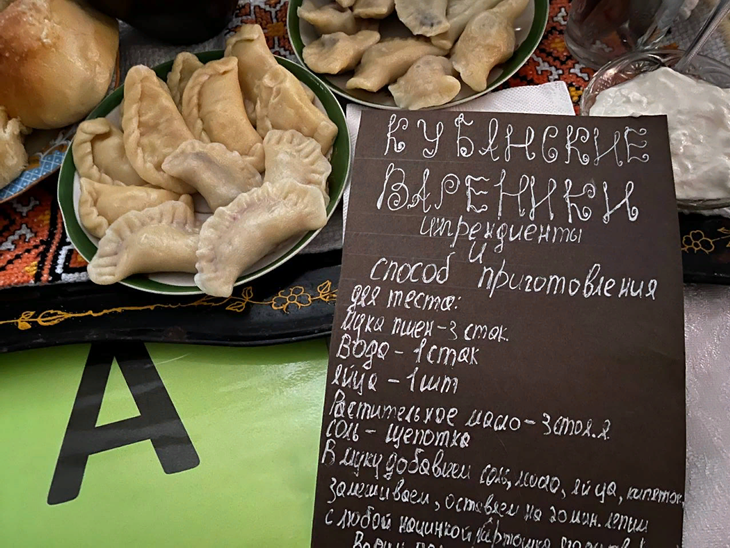 КУБАНСКИЕ
ВАРЕНИКИ
ингредиенты
и
способ приготовления
для теста:
Мука пшен-3 стак.
Вода - 1 стак
яйца - 1 шт
Растительное масло - 3 стол.л
соль - щепотка
В муку добавляем соль, масло, яйца, кипяток,
замешиваем, оставляем на 20 мин. лепим
с любой начинкой картошка
Варим
А